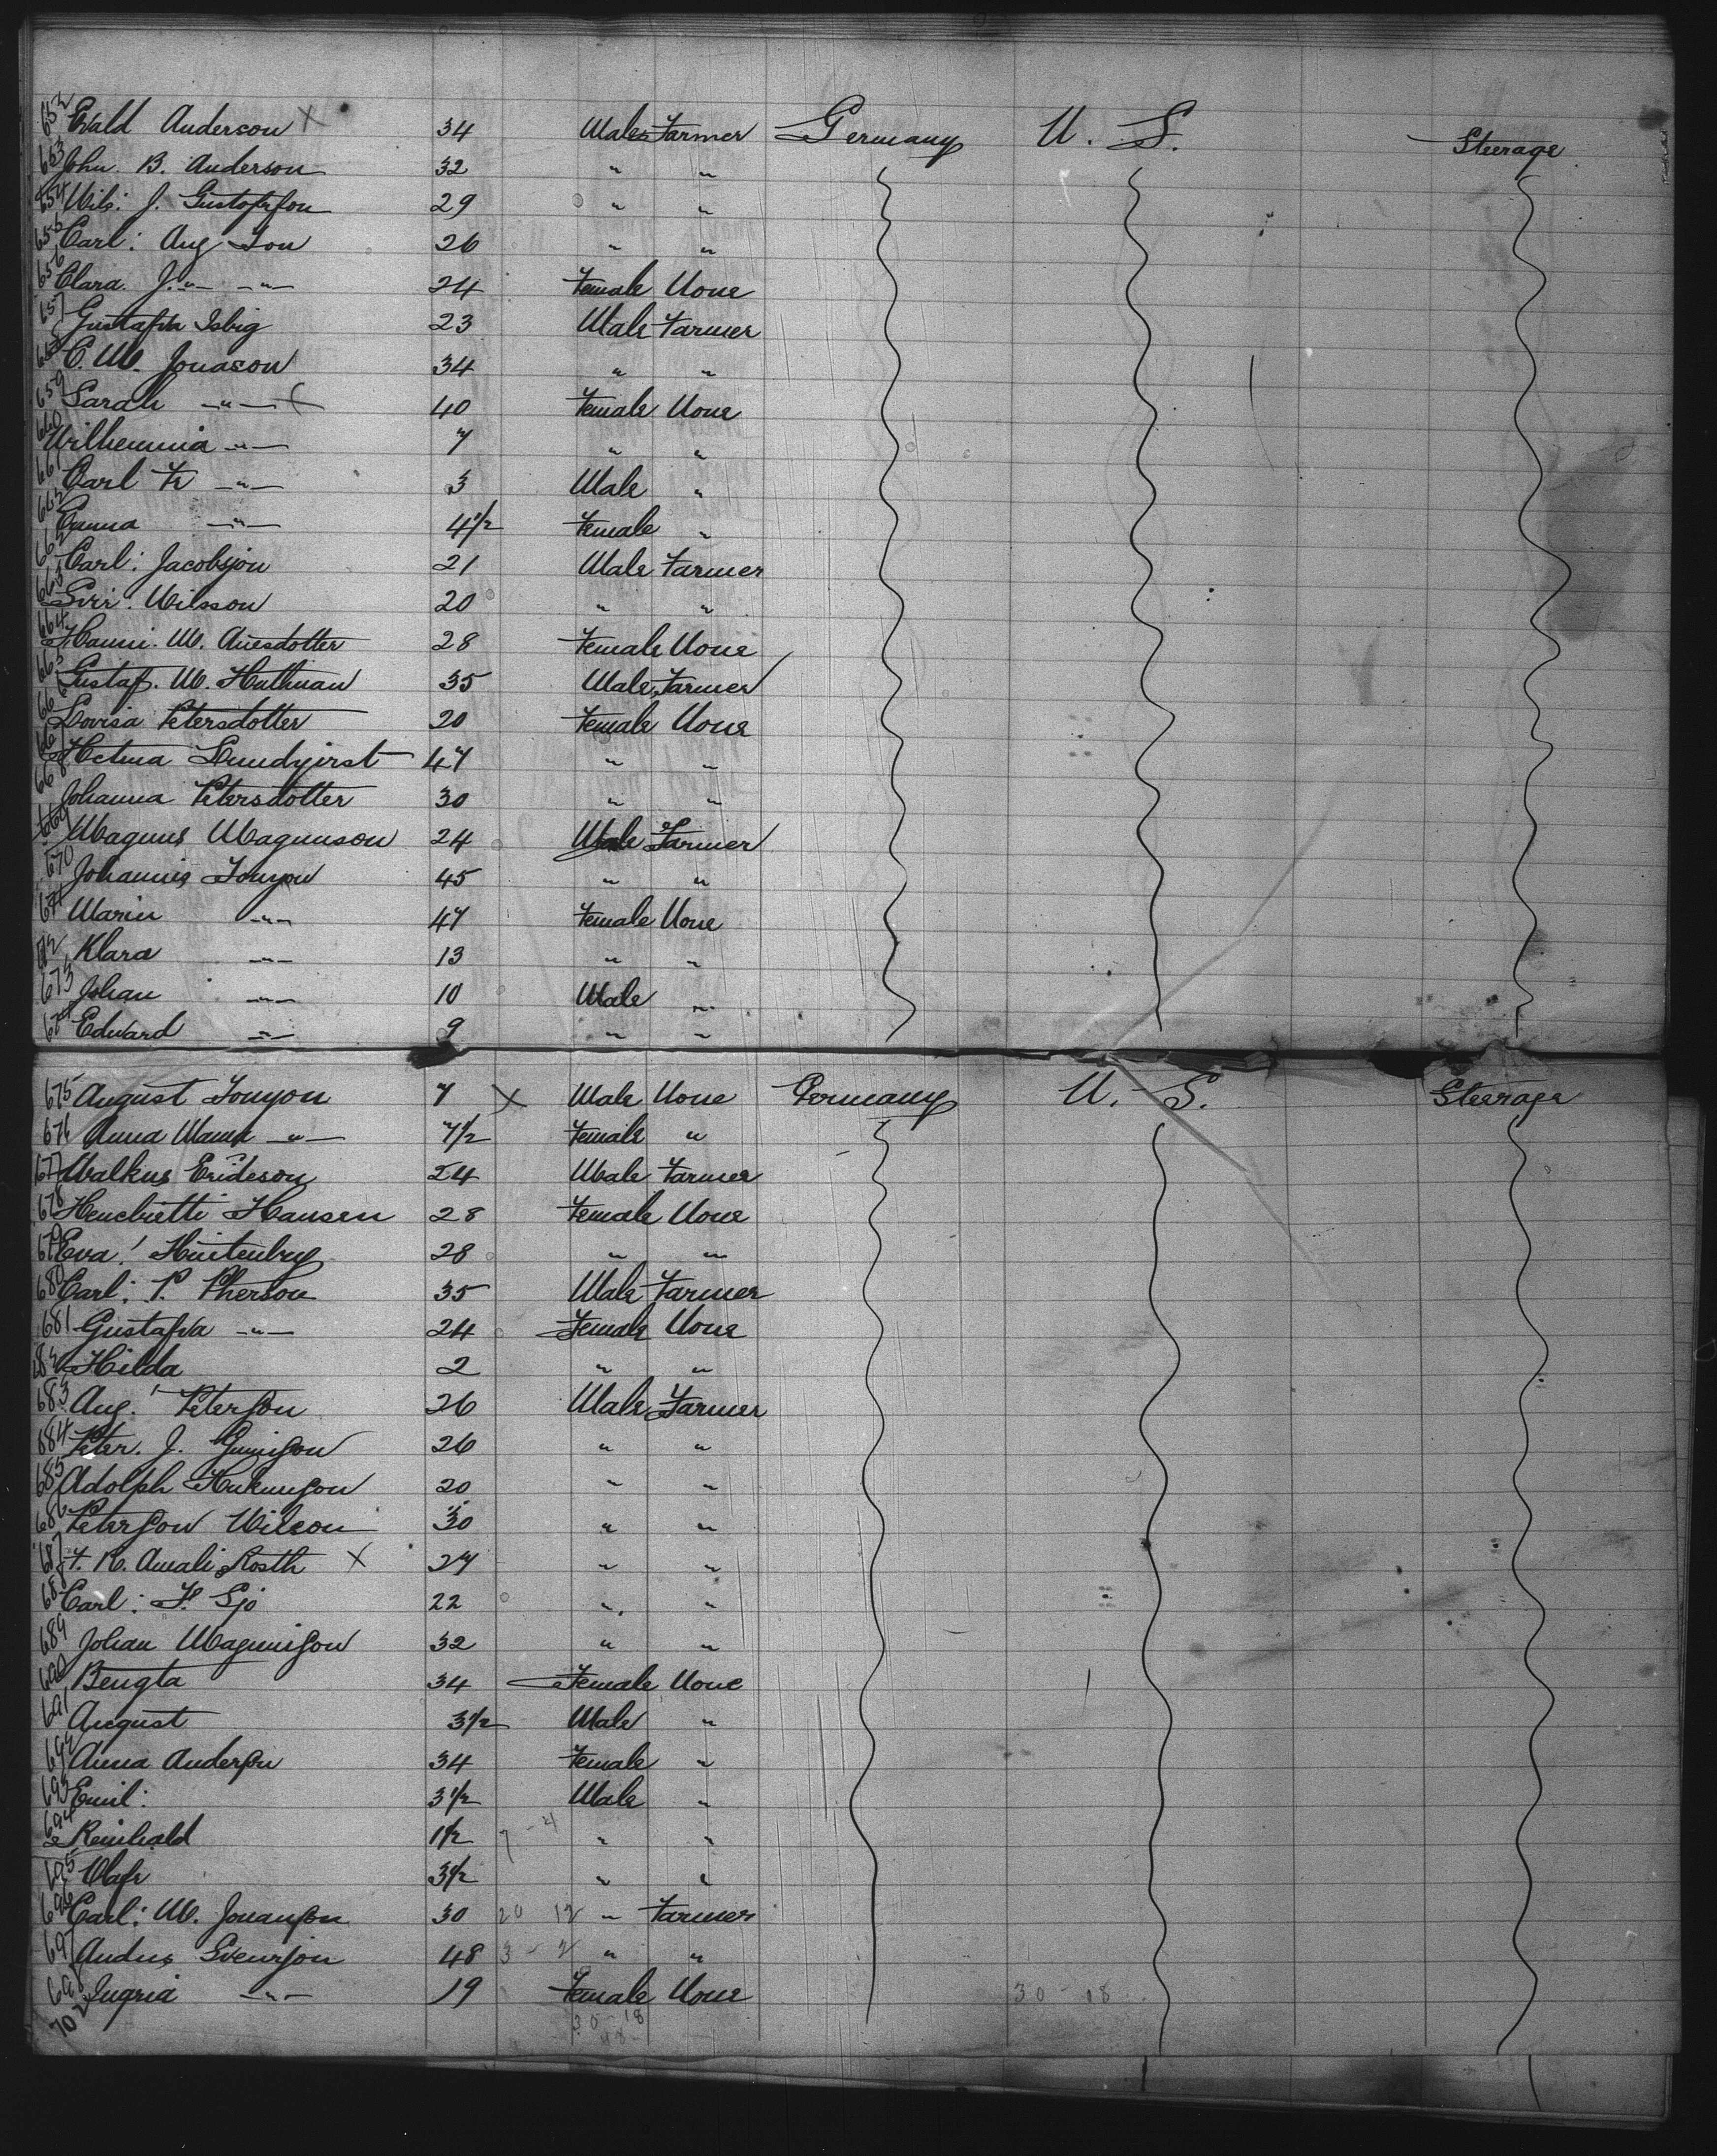 652 Ewald Anderson X 34 Male Farmer Germany U. S. Steerage
653 John. B. Anderson 32 " "
654 Nils: J. Gustafsson 29 " "
655 Carl: Aug Son 26 " "
656 Clara. J. " " 24 Female None
657 Gustafva Isbig 23 Male Farmer
658 C. M. Jonason 34 " "
659 Sarah " X 40 Female None
660 Wilhemmia " 7 " "
661 Carl Fr " 3 Male "
662 Emma " 4 1/2 Female "
662 Carl: Jacobsson 21 Male Farmer
663 Nilsson 20 " "
664 Hanni. M. Anesdotter 28 Female None
665 Gustaf. M. Hallman 35 Male Farmer
666 Lovisa Petersdotter 20 Female None
667 Lundqvist 47 " "
668 Johanna Petersdotter 30 " "
669 Magnus Magnuson 24 Male Farmer
670 Johannis Jonson 45 " "
671 Marin " 47 Female None
672 Klara " 13 " "
673 Johan " 10 Male "
674 Edward " 9 " "
675 August Jonson 7 X Male None Germany U. S. Steerage
676 Anna Maria " 7 1/2 Female "
677 Malkus Erideson 24 Male Farmer
678 Henrietti Hansen 28 Female None
679 Eva! 28 " "
680 Carl: P. Pherson 35 Male Farmer
681 Gustafva " 24 Female None
682 Hilda 2 " "
683 Aug! Peterson 26 Male Farmer
684 Peter. J. 26 " "
685 Adolph 20 " "
686 Peterson Nilson 30 " "
687 F. K. Amali Rosth X 27 " "
688 Carl: F. Sjo 22 " "
689 Johan Magnuison 32 " "
690 Bengta 34 Female None
691 August 3 1/2 Male "
692 Anna Anderson 34 Female "
693 Emil: 3 1/2 Male "
694 Reinhald 1 1/2 " "
695 Olafr 3 1/2 " "
696 Carl: M. Jonanson 30 20 12 " Farmer
697 Andrus Svenson 48 3 - 2 " "
698 Ingria " 19 Female None 30 - 18
702 30 - 18
48 -